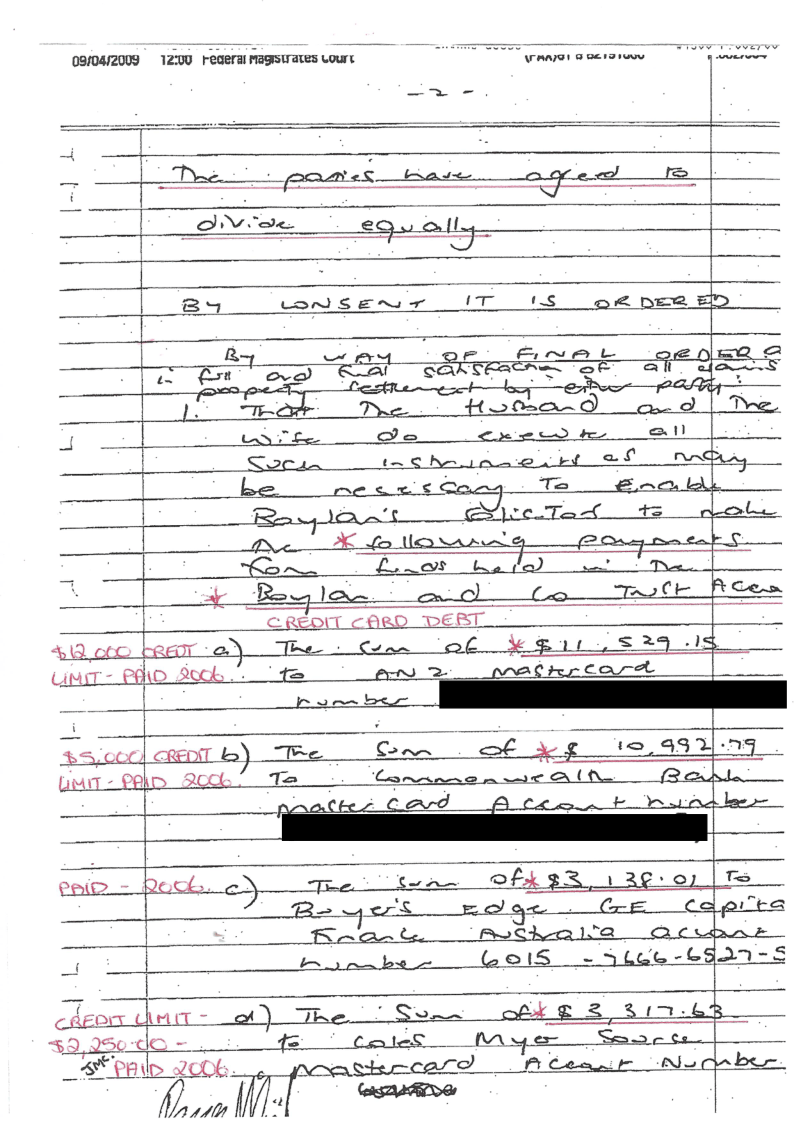 09/04/2009 12:00 Federal Magistrates Court
- 2 -
The parties have agreed to
divide equally
BY CONSENT IT IS ORDERED
BY WAY OF FINAL ORDER
in full and final satisfaction of all claims
property settlement by either party:
1. That the Husband and the
wife do execute all
such instruments as may
be necessary to enable
Boylan's to make
the * following payments
from funds held in the
* Boylan and Co Trust
CREDIT CARD DEBT
$12,000 CREDIT a) The sum of * $11,529.15
LIMIT - PAID 2006. to ANZ Mastercard
number
$5,000 CREDIT b) The sum of * $ 10,992.79
LIMIT - PAID 2006. To Commonwealth Bank
Mastercard Account number
PAID - 2006. c) The sum of * $3,138.01 To
Buyer's Edge GE Capita
Finance Australia account
number 6015 - 7666-6527-5
CREDIT LIMIT - d) The sum of * $3,317.63
$2,250.00 - to Coles Myer Source
JMC PAID 2006. Mastercard Account Number